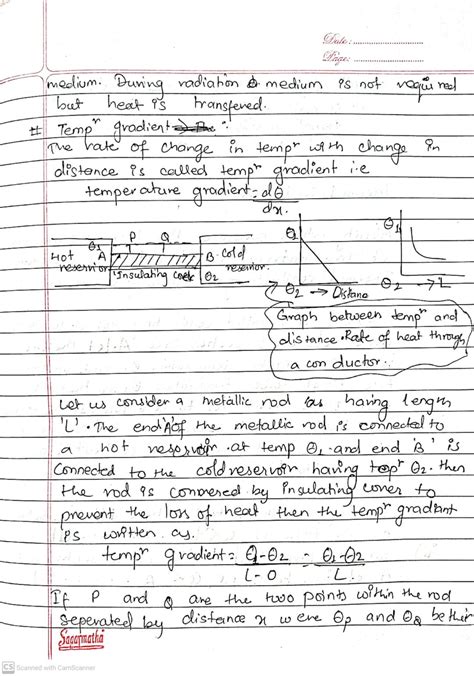 Date: ..............................
Page: ..............................
medium. During radiation medium is not required
but heat is transfered.
# Tempʳ gradient :
The rate of change in tempʳ with change in
distance is called tempʳ gradient i.e
temperature gradient = dθ
dx.
θ₁ P Q
Hot A B cold
reservior reservior.
Insulating θ₂
θ₁
θ₂ → Distance
θ₁
θ₂ → L
Graph between tempʳ and
distance. Rate of heat through
a conductor.
Let us consider a metallic rod having length
'L'. The end 'A' of the metallic rod is connected to
a hot at temp θ₁ and end 'B' is
Connected to the cold reservoir having θ₂. then
the rod is by insulating cover to
prevent the loss of heat then the tempʳ gradiant
is written as.
tempʳ gradient = θ₁-θ₂ = θ₁-θ₂
L-0 L.
If P and Q are the two points within the rod
seperated by distance x were θp and θQ be their
Sagarmatha
CS Scanned with CamScanner